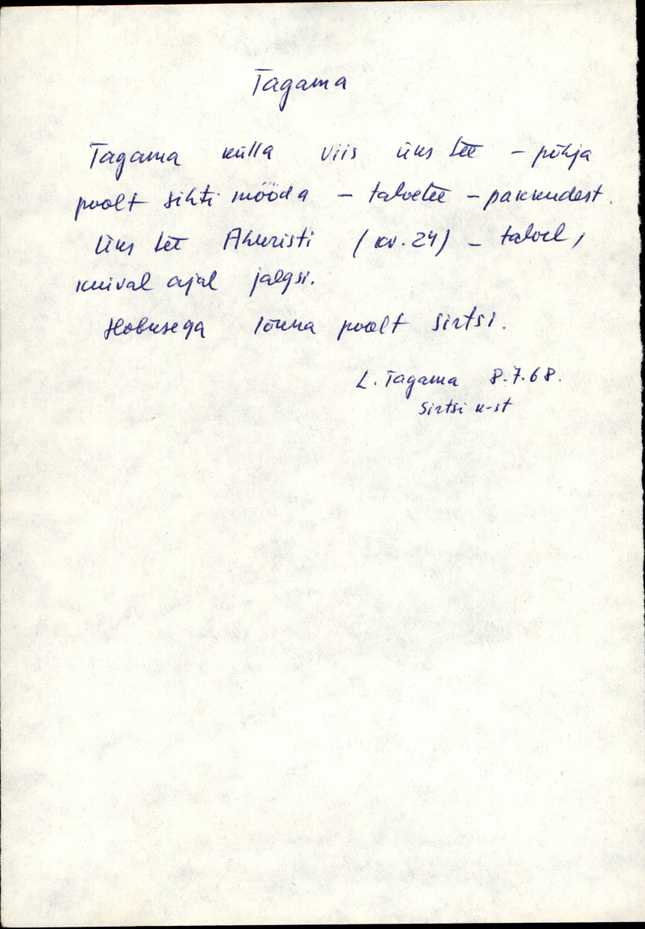 Tagama
Tagama külla viis üks tee – põhja
poolt sihti mööda – talvetee – pakkudest.
Üks tee Ahuristi (kv. 24) – talvel,
kuival ajal jalgsi.
Hobusega lõuna poolt Sirtsi.
L. Tagama 8.7.68.
Sirtsi k-st